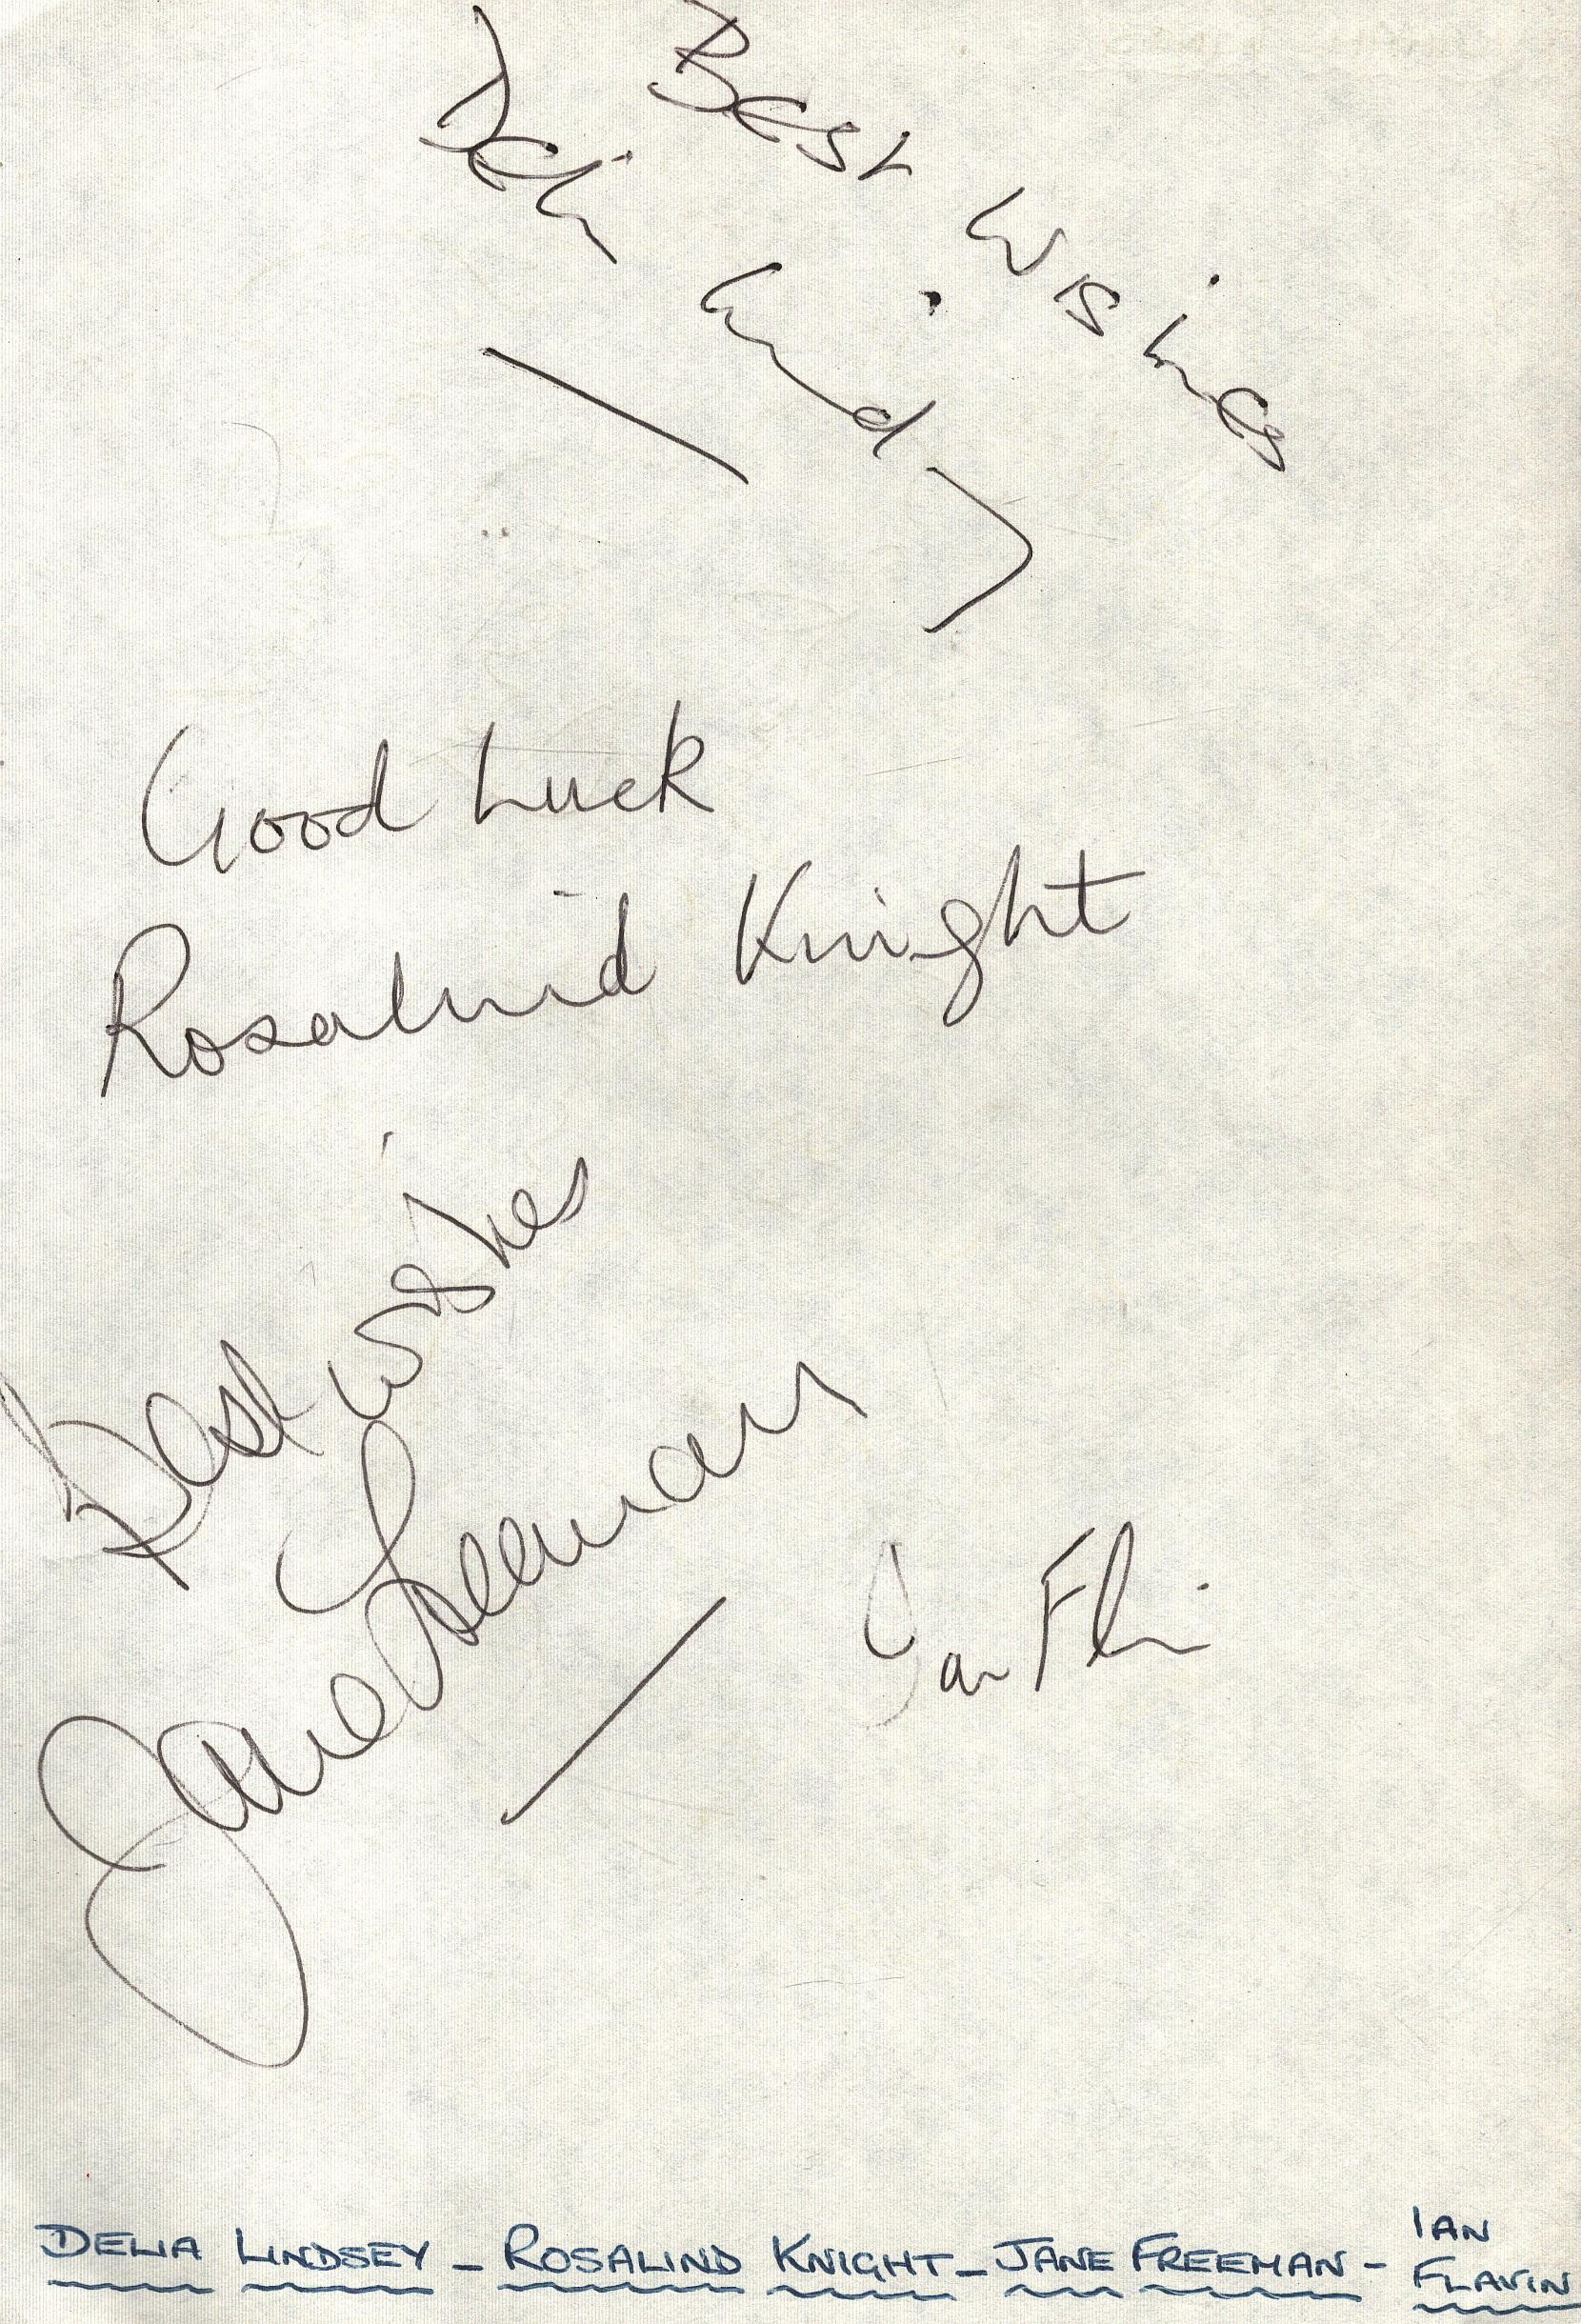 Best Wishes
Delia Lindsey
Good Luck
Rosalind Knight
Best wishes
Jane Freeman
Ian Flavin
DELIA LINDSEY - ROSALIND KNIGHT - JANE FREEMAN - IAN FLAVIN